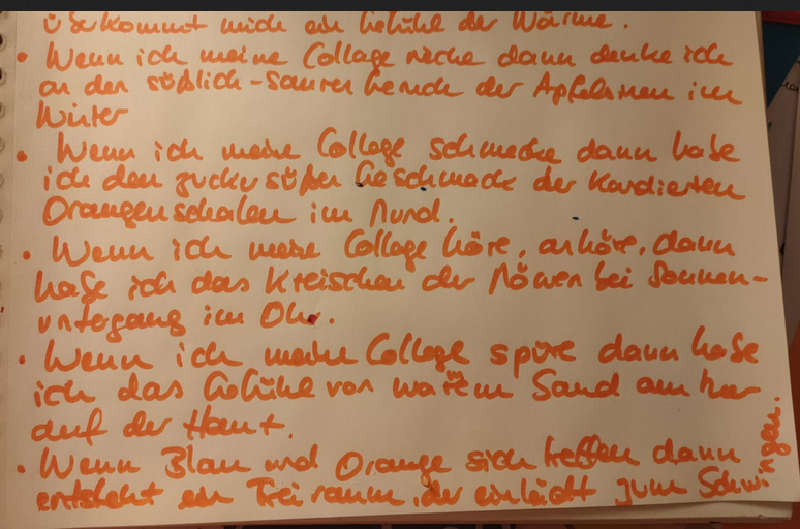 überkommt mich ein Gefühl der Wärme.
• Wenn ich meine Collage rieche dann denke ich
an den süßlich-sauren Geruch der Apfelsinen im
Winter
• Wenn ich meine Collage schmecke dann habe
ich den zuckersüßen Geschmack der kandierten
Orangenschalen im Mund.
• Wenn ich meine Collage höre, anhöre, dann
habe ich das Kreischen der Möwen bei Sonnen-
untergang im Ohr.
• Wenn ich meine Collage spüre dann habe
ich das Gefühl von warmem Sand am Meer
auf der Haut.
• Wenn Blau und Orange sich treffen dann
entsteht ein Freiraum, der einlädt zum Schwingen.